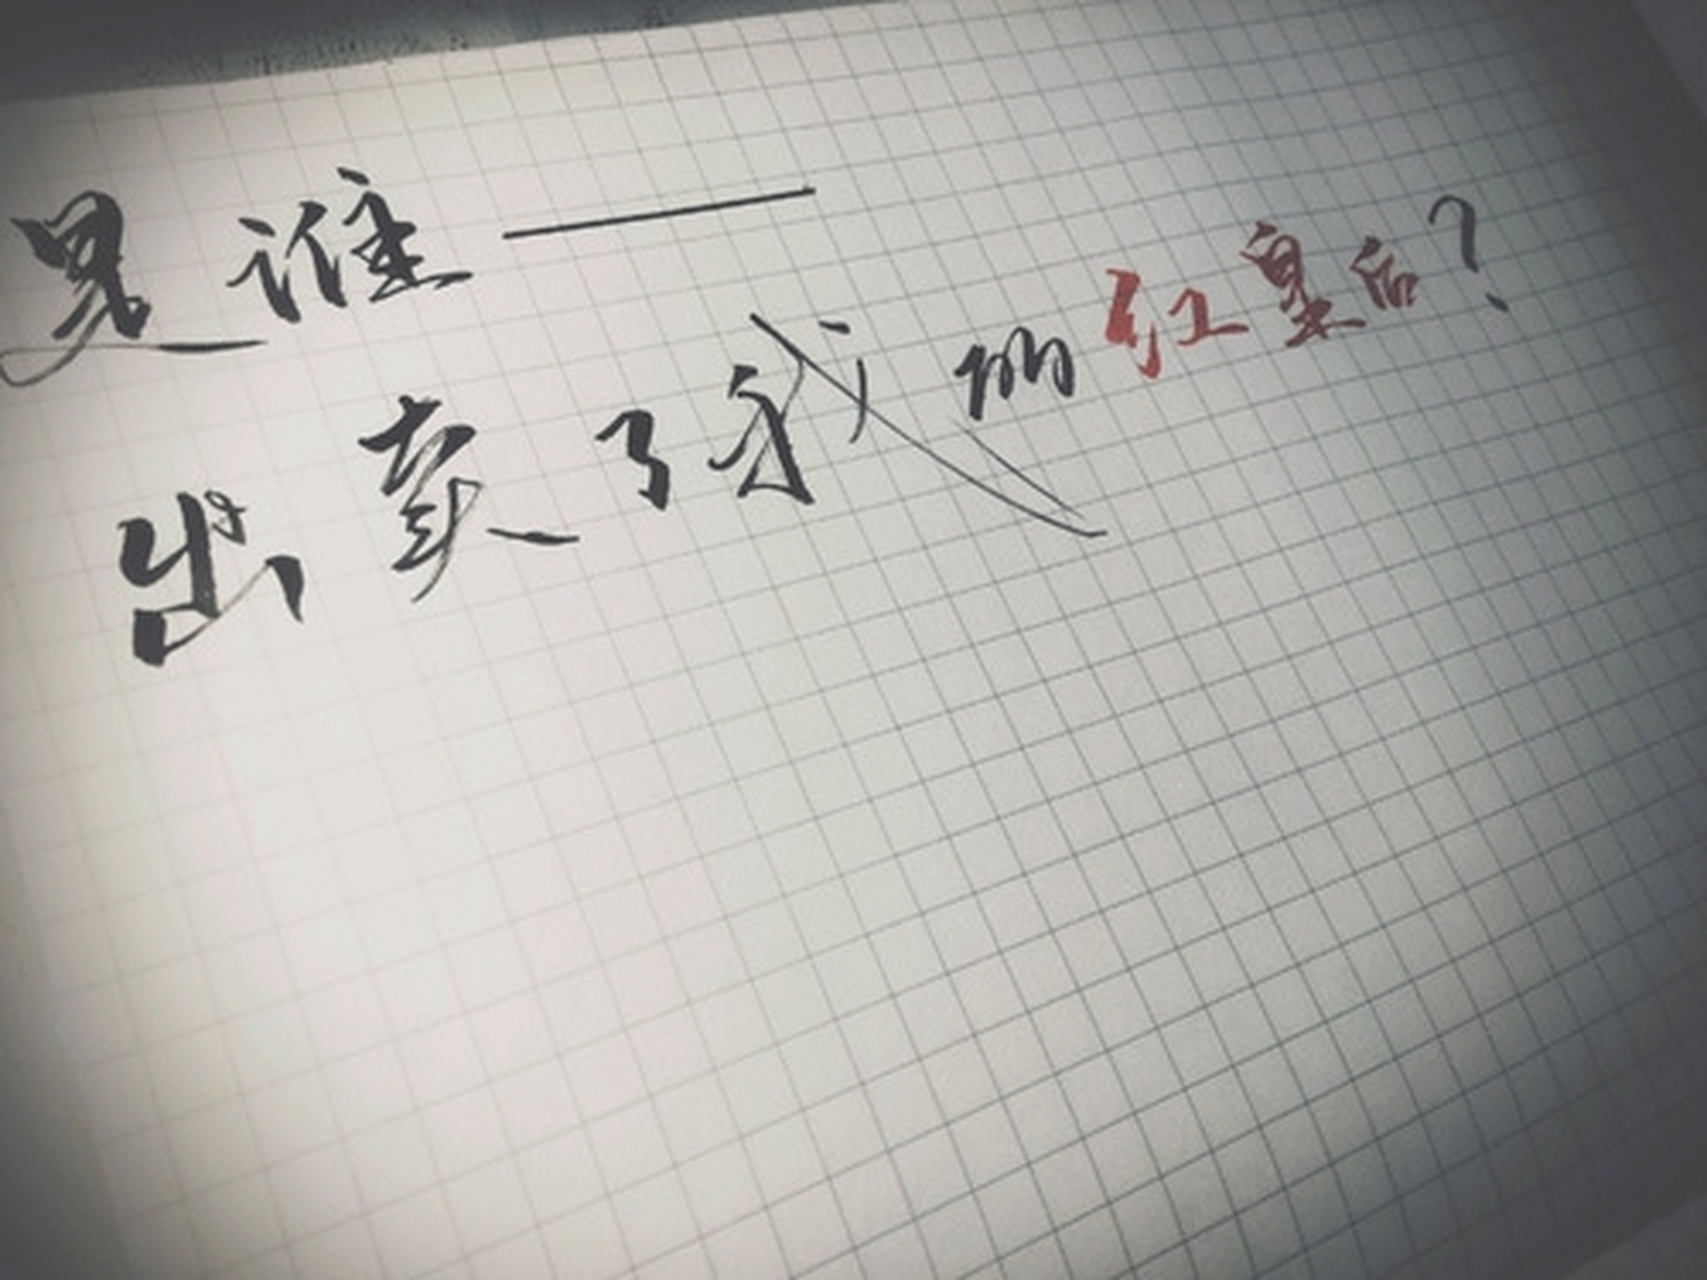 是谁——
出卖了我的红皇后?